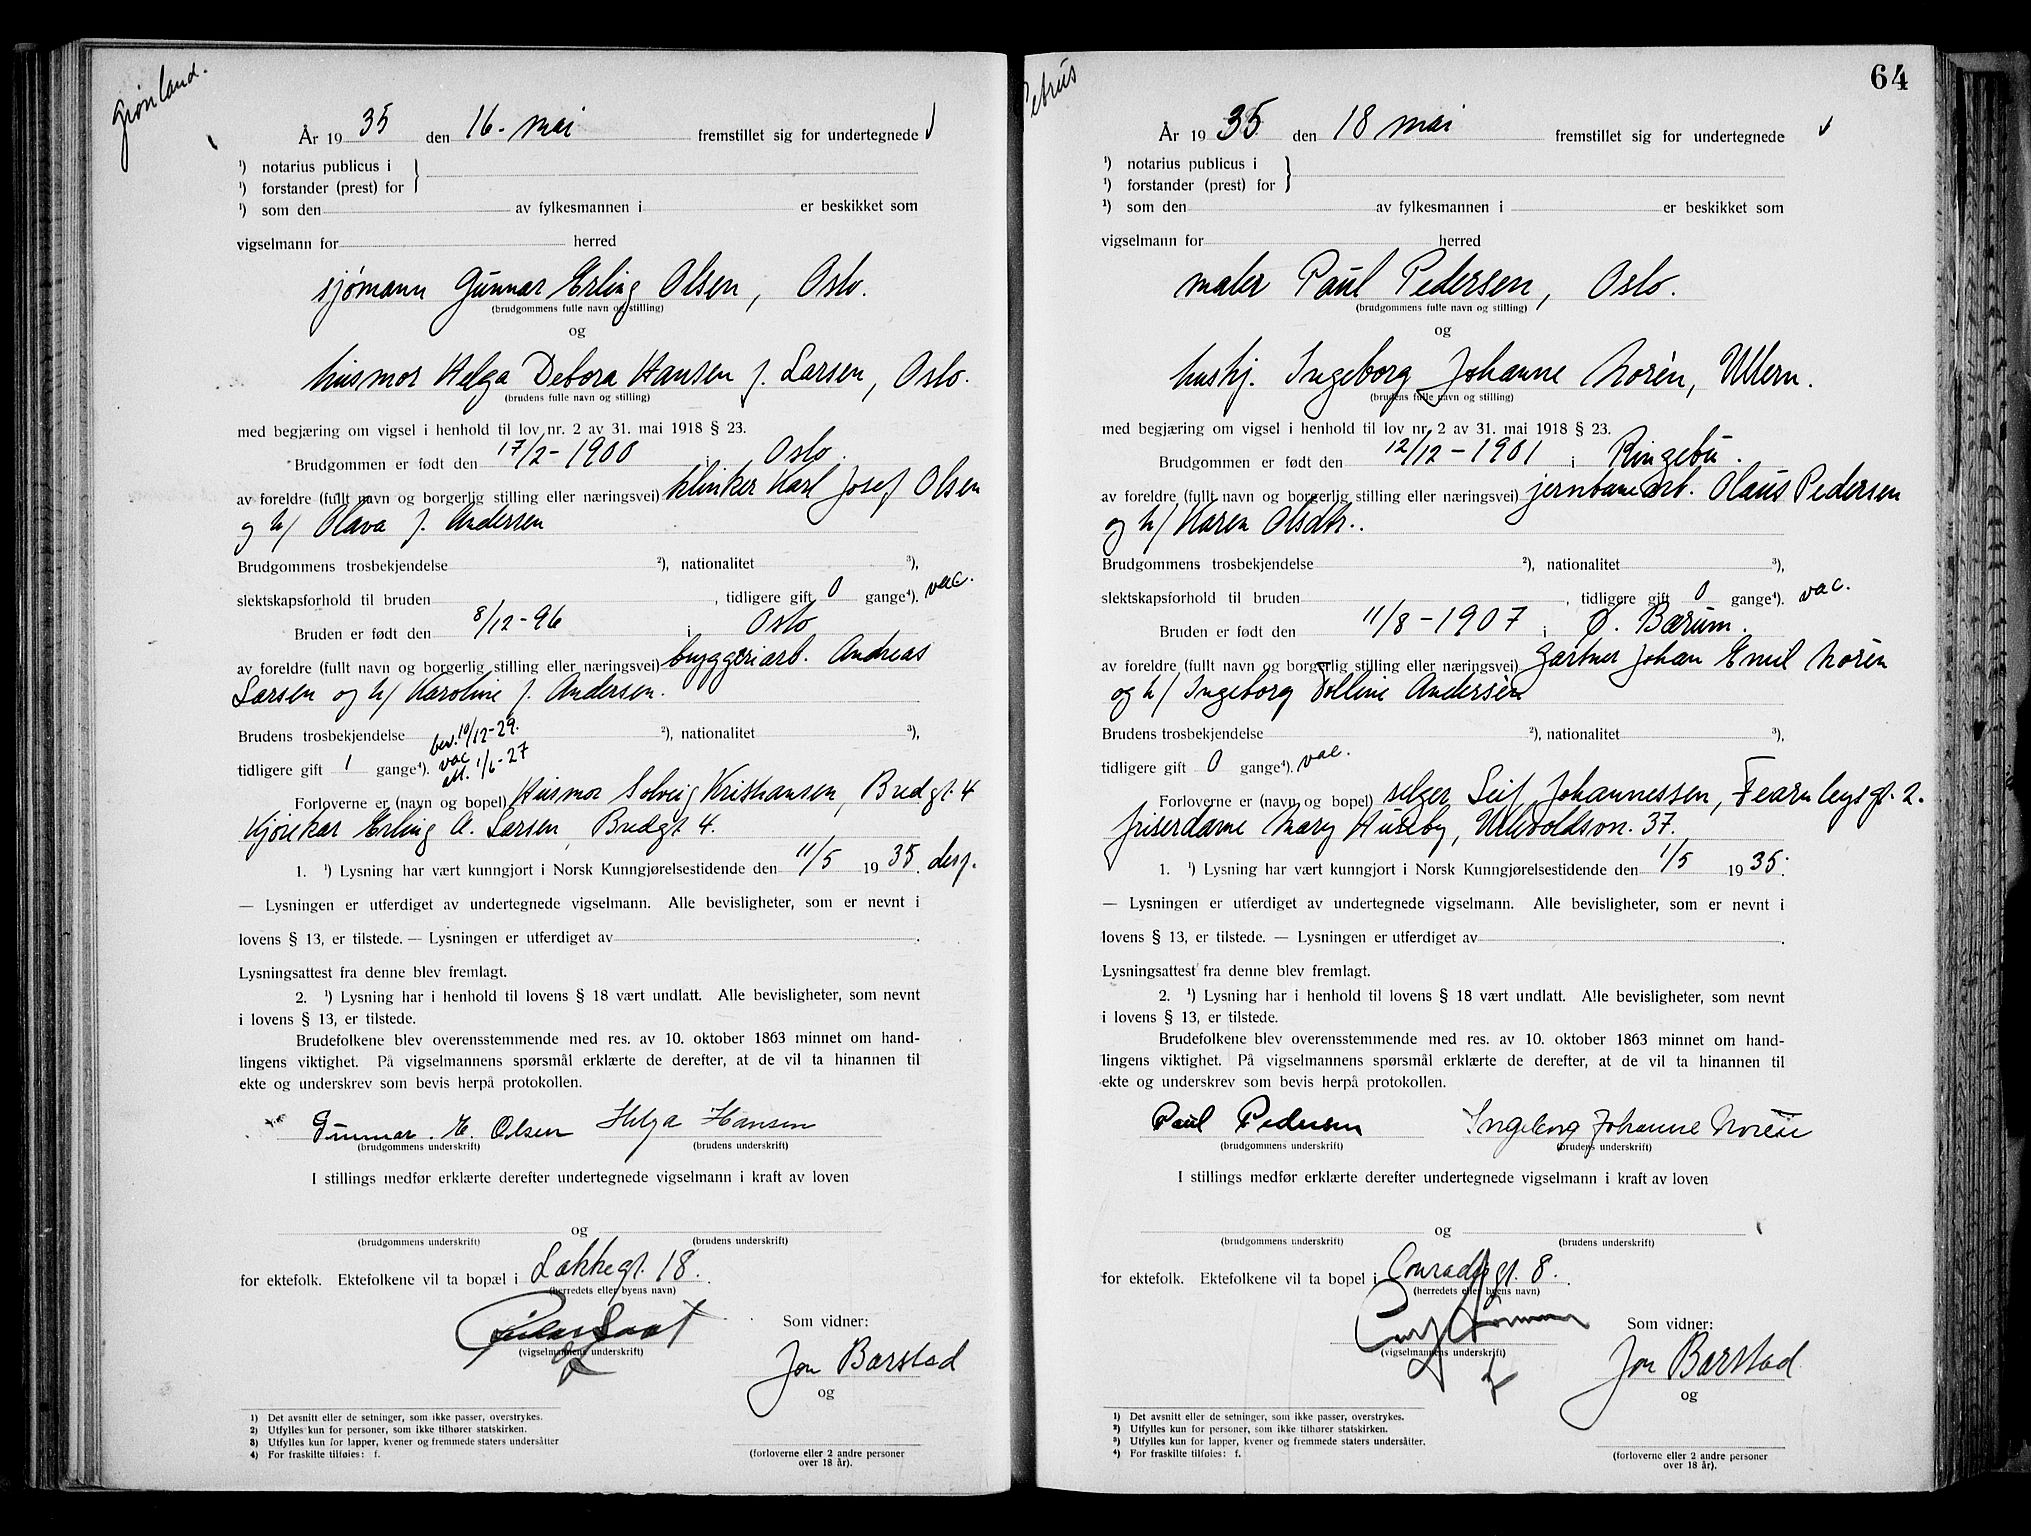 Grønland.
År 19 35 den 16. mai fremstillet sig for undertegnede
¹) notarius publicus i
¹) forstander (prest) for
¹) som den av fylkesmannen i er beskikket som
vigselmann for herred
sjømann Gunnar Erling Olsen, Oslo.
(brudgommens fulle navn og stilling)
og
husmor Helga Debora Hansen f. Larsen, Oslo.
(brudens fulle navn og stilling)
med begjæring om vigsel i henhold til lov nr. 2 av 31. mai 1918 § 23.
Brudgommen er født den 17/2-1900 i Oslo.
av foreldre (fullt navn og borgerlig stilling eller næringsvei) klinker Karl Josef Olsen
og h/ Olava f. Andersen
Brudgommens trosbekjendelse ²), nationalitet ³),
slektskapsforhold til bruden , tidligere gift 0 gange⁴). vac.
Bruden er født den 8/12-96 i Oslo
av foreldre (fullt navn og borgerlig stilling eller næringsvei) bryggeriarb. Andreas
Larsen og h/ Karoline f. Andersen.
Brudens trosbekjendelse ²), nationalitet ³),
bev. 10/12-29.
tidligere gift 1 gange⁴). vac
att. 1/6-27
Forloverne er (navn og bopel) Husmor Solveig Kristiansen, Bredgt. 4
Kjørekar Erling A. Larsen, Bredgt 4.
1. ¹) Lysning har vært kunngjort i Norsk Kunngjørelsestidende den 11/5 19 35. desf.
— Lysningen er utferdiget av undertegnede vigselmann. Alle bevisligheter, som er nevnt i
lovens § 13, er tilstede. — Lysningen er utferdiget av .
Lysningsattest fra denne blev fremlagt.
2. ¹) Lysning har i henhold til lovens § 18 vært undlatt. Alle bevisligheter, som nevnt
i lovens § 13, er tilstede.
Brudefolkene blev overensstemmende med res. av 10. oktober 1863 minnet om hand-
lingens viktighet. På vigselmannens spørsmål erklærte de derefter, at de vil ta hinannen til
ekte og underskrev som bevis herpå protokollen.
Gunnar. E. Olsen Helga Hansen
(brudgommens underskrift) (brudens underskrift)
I stillings medfør erklærte derefter undertegnede vigselmann i kraft av loven
og
(brudgommens underskrift) (brudens underskrift)
for ektefolk. Ektefolkene vil ta bopæl i Lakkegt. 18.
(herredets eller byens navn)
Som vidner:
(vigselmannens underskrift)
Jon Barstad
og
1) Det avsnitt eller de setninger, som ikke passer, overstrykes.
2) Utfylles kun for personer, som ikke tilhører statskirken.
3) Utfylles kun for lapper, kvener og fremmede staters undersåtter
4) For fraskilte tilføies: f.
(forloverne eller 2 andre personer
over 18 år).
Petrus
64
År 19 35 den 18 mai fremstillet sig for undertegnede
¹) notarius publicus i
¹) forstander (prest) for
¹) som den av fylkesmannen i er beskikket som
vigselmann for herred
maler Paul Pedersen, Oslo.
(brudgommens fulle navn og stilling)
og
hushj. Ingeborg Johanne Norén, Ullern.
(brudens fulle navn og stilling)
med begjæring om vigsel i henhold til lov nr. 2 av 31. mai 1918 § 23.
Brudgommen er født den 12/12-1901 i Ringebu.
av foreldre (fullt navn og borgerlig stilling eller næringsvei) jernbanearb. Olaus Pedersen
og h/ Karen Olsdtr.
Brudgommens trosbekjendelse ²), nationalitet ³),
slektskapsforhold til bruden , tidligere gift 0 gange⁴). vac.
Bruden er født den 11/8-1907 i Ø. Bærum.
av foreldre (fullt navn og borgerlig stilling eller næringsvei) Gartner Johan Emil Norén
og h/ Ingeborg Tolline Andersén
Brudens trosbekjendelse ²), nationalitet ³),
tidligere gift 0 gange⁴). vac.
Forloverne er (navn og bopel) selger Leif Johannessen, Fearnleysgt. 2.
friserdame Mary Huseby, Ullevoldsvn. 37.
1. ¹) Lysning har vært kunngjort i Norsk Kunngjørelsestidende den 1/5 19 35.
— Lysningen er utferdiget av undertegnede vigselmann. Alle bevisligheter, som er nevnt i
lovens § 13, er tilstede. — Lysningen er utferdiget av .
Lysningsattest fra denne blev fremlagt.
2. ¹) Lysning har i henhold til lovens § 18 vært undlatt. Alle bevisligheter, som nevnt
i lovens § 13, er tilstede.
Brudefolkene blev overensstemmende med res. av 10. oktober 1863 minnet om hand-
lingens viktighet. På vigselmannens spørsmål erklærte de derefter, at de vil ta hinannen til
ekte og underskrev som bevis herpå protokollen.
Paul Pedersen Ingeborg Johanne Norén
(brudgommens underskrift) (brudens underskrift)
I stillings medfør erklærte derefter undertegnede vigselmann i kraft av loven
og
(brudgommens underskrift) (brudens underskrift)
for ektefolk. Ektefolkene vil ta bopel i Conradisgt. 8.
(herredets eller byens navn)
Som vidner:
(vigselmannens underskrift)
Jon Barstad
og
¹) Det avsnitt eller de setninger, som ikke passer, overstrykes.
²) Utfylles kun for personer, som ikke tilhører statskirken.
³) Utfylles kun for lapper, kvener og fremmede staters undersåtter.
⁴) For fraskilte tilføies: f.
(forloverne eller 2 andre personer
over 18 år).